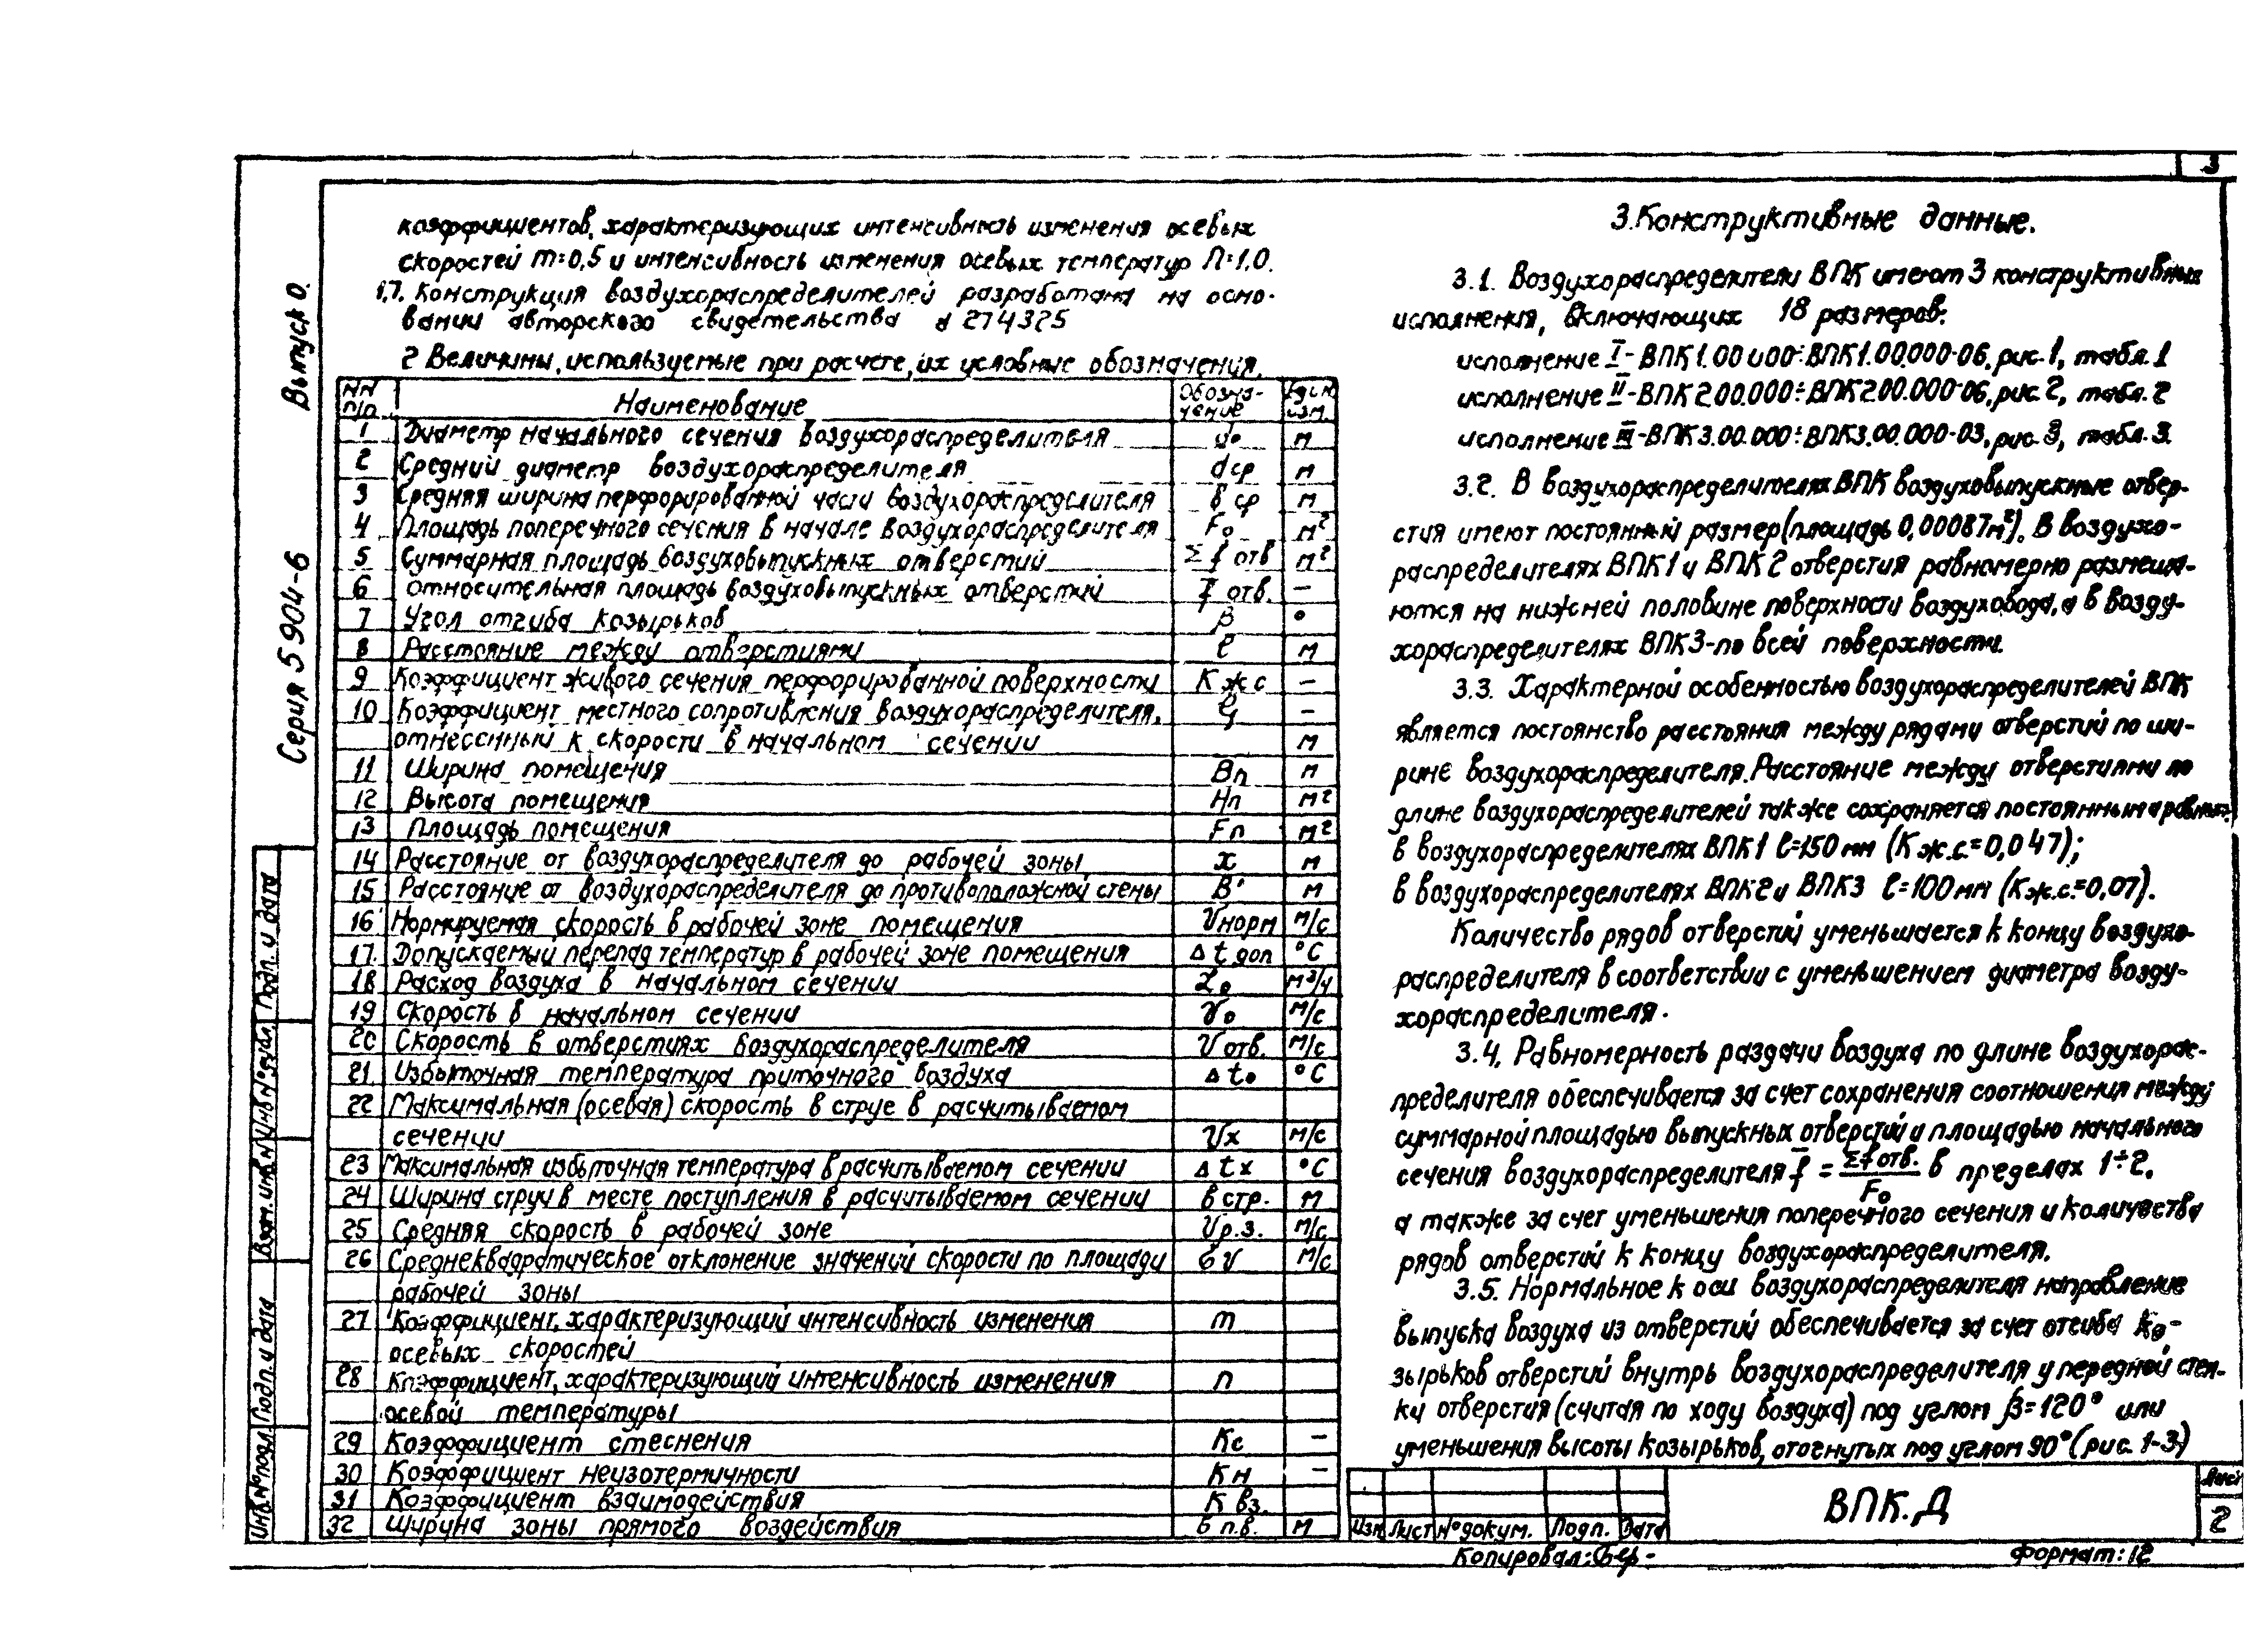 3
Серия 5 904-6 Выпуск 0.
коэффициентов, характеризующих интенсивность изменения осевых
скоростей m=0,5 и интенсивность изменения осевых температур П=1,0.
1.7. Конструкция воздухораспределителей разработана на осно-
вании авторского свидетельства 274325
2 Величины, используемые при расчете, их условные обозначения.
NN п/п Наименование Обозна-чение Един изм.
1 Диаметр начального сечения воздухораспределителя do м
2 Средний диаметр воздухораспределителя dср м
3 Средняя ширина перфорированной части воздухораспределителя вср м
4 Площадь поперечного сечения в начале воздухораспределителя Fo м²
5 Суммарная площадь воздуховыпускных отверстий Σ f отв м²
6 относительная площадь воздуховыпускных отверстий f̄ отв. –
7 Угол отгиба козырьков β °
8 Расстояние между отверстиями ℓ м
9 Коэффициент живого сечения перфорированной поверхности К ж с –
10 Коэффициент местного сопротивления воздухораспределителя, ζ –
отнесенный к скорости в начальном сечении м
11 Ширина помещения Вп м
12 Высота помещения Нп м²
13 Площадь помещения Fп м²
14 Расстояние от воздухораспределителя до рабочей зоны x м
15 Расстояние от воздухораспределителя до противоположной стены В' м
16 Нормируемая скорость в рабочей зоне помещения Vнорм м/с
17. Допускаемый перепад температур в рабочей зоне помещения Δ t доп °С
18 Расход воздуха в начальном сечении Lo м³/ч
19 Скорость в начальном сечении Vo м/с
20 Скорость в отверстиях воздухораспределителя V отв. м/с
21 Избыточная температура приточного воздуха Δ to °С
22 Максимальная (осевая) скорость в струе в расчитываемом
сечении Vx м/с
23 Максимальная избыточная температура в расчитываемом сечении Δ tx °С
24 Ширина струи в месте поступления в расчитываемом сечении в стр. м
25 Средняя скорость в рабочей зоне Vр.з. м/с
26 Среднеквадратическое отклонение значений скорости по площади бV м/с
рабочей зоны
27 Коэффициент, характеризующий интенсивность изменения m
осевых скоростей
28 Коэффициент, характеризующий интенсивность изменения п
осевой температуры
29 Коэффициент стеснения Кс –
30 Коэффициент неизотермичности Кн –
31 Коэффициент взаимодействия К вз.
32 Ширина зоны прямого воздействия в п.в. м
3.Конструктивные данные.
3.1. Воздухораспределители ВПК имеют 3 конструктивных
исполнения, включающих 18 размеров:
исполнение I- ВПК1.00.000÷ВПК1.00.000-06, рис.1, табл.1
исполнение II-ВПК2.00.000÷ВПК2.00.000-06, рис.2, табл.2
исполнение III-ВПК3.00.000÷ВПК3.00.000-03, рис.3, табл.3.
3.2. В воздухораспределителях ВПК воздуховыпускные отвер-
стия имеют постоянный размер (площадь 0,00087м²). В воздухо-
распределителях ВПК1 и ВПК2 отверстия равномерно размеща-
ются на нижней половине поверхности воздуховода, а в возду-
хораспределителях ВПК3-по всей поверхности.
3.3. Характерной особенностью воздухораспределителей ВПК
является постоянство расстояния между рядами отверстий по ши-
рине воздухораспределителя. Расстояние между отверстиями по
длине воздухораспределителей также сохраняется постоянным и равным:
в воздухораспределителях ВПК1 ℓ=150 мм (К ж.с.=0,047);
в воздухораспределителях ВПК2 и ВПК3 ℓ=100 мм (Кж.с.=0,07).
Количество рядов отверстий уменьшается к концу воздухо-
распределителя в соответствии с уменьшением диаметра возду-
хораспределителя.
3.4. Равномерность раздачи воздуха по длине воздухорас-
пределителя обеспечивается за счет сохранения соотношения между
суммарной площадью выпускных отверстий и площадью начального
сечения воздухораспределителя f̄ = Σf отв./Fo в пределах 1÷2.
а также за счет уменьшения поперечного сечения и количества
рядов отверстий к концу воздухораспределителя.
3.5. Нормальное к оси воздухораспределителя направление
выпуска воздуха из отверстий обеспечивается за счет отгиба ко-
зырьков отверстий внутрь воздухораспределителя у передней стен-
ки отверстия (считая по ходу воздуха) под углом β=120° или
уменьшения высоты козырьков, отогнутых под углом 90° (рис. 1-3)
Инв.№подл. Подп. и дата Взам. инв.N Инв N дубл. Подп. и дата
Изм Лист №докум. Подп. Дата
ВПК.Д
Лист
2
Копировал: Бер-
Формат: 12